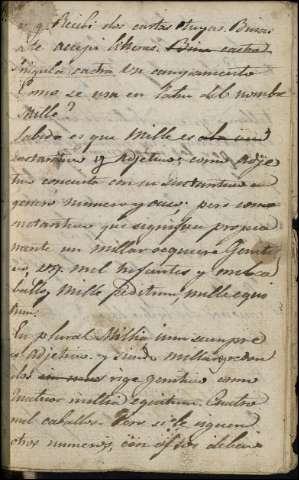 v. g. Recibi dos cartas tuyas. Binas
a te accepi litteras.
singula castra. Un campamento
Como se usa en Latin del nombre
Mille?
Sabido es que Mille es
sustantivo y Adjetivo; como Adje
tivo concierta con su sustantivo en
genero numero y caso: pero como
sustantivo que significa propia
mente un millar requiere Geniti
vo, v. g. mil Infantes y mil ca
ballos, Mille peditum, mille equi
tum.
En plural Millia, ium siempre
es Adjetivo. y siendo millares
dos rige Genitivo como
Quatuor millia equitum. Cuatro
mil caballos. Pero si le siguen
otros numeros, deben